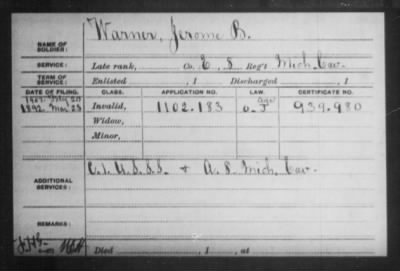 NAME OF SOLDIER: Warner, Jerome B.
SERVICE: Late rank, Co. E, 8 Reg't Mich. Cav.
TERM OF SERVICE: Enlisted , 1 Discharged , 1
DATE OF FILING. CLASS. APPLICATION NO. LAW. CERTIFICATE NO.
1907 20 Age
1892 Mar 23 Invalid, 1102.183 O. J 939.980
Widow,
Minor,
ADDITIONAL SERVICES: C. 1. U.S.S.S. + A. 8. Mich. Cav.
REMARKS:
Died , 1 , at